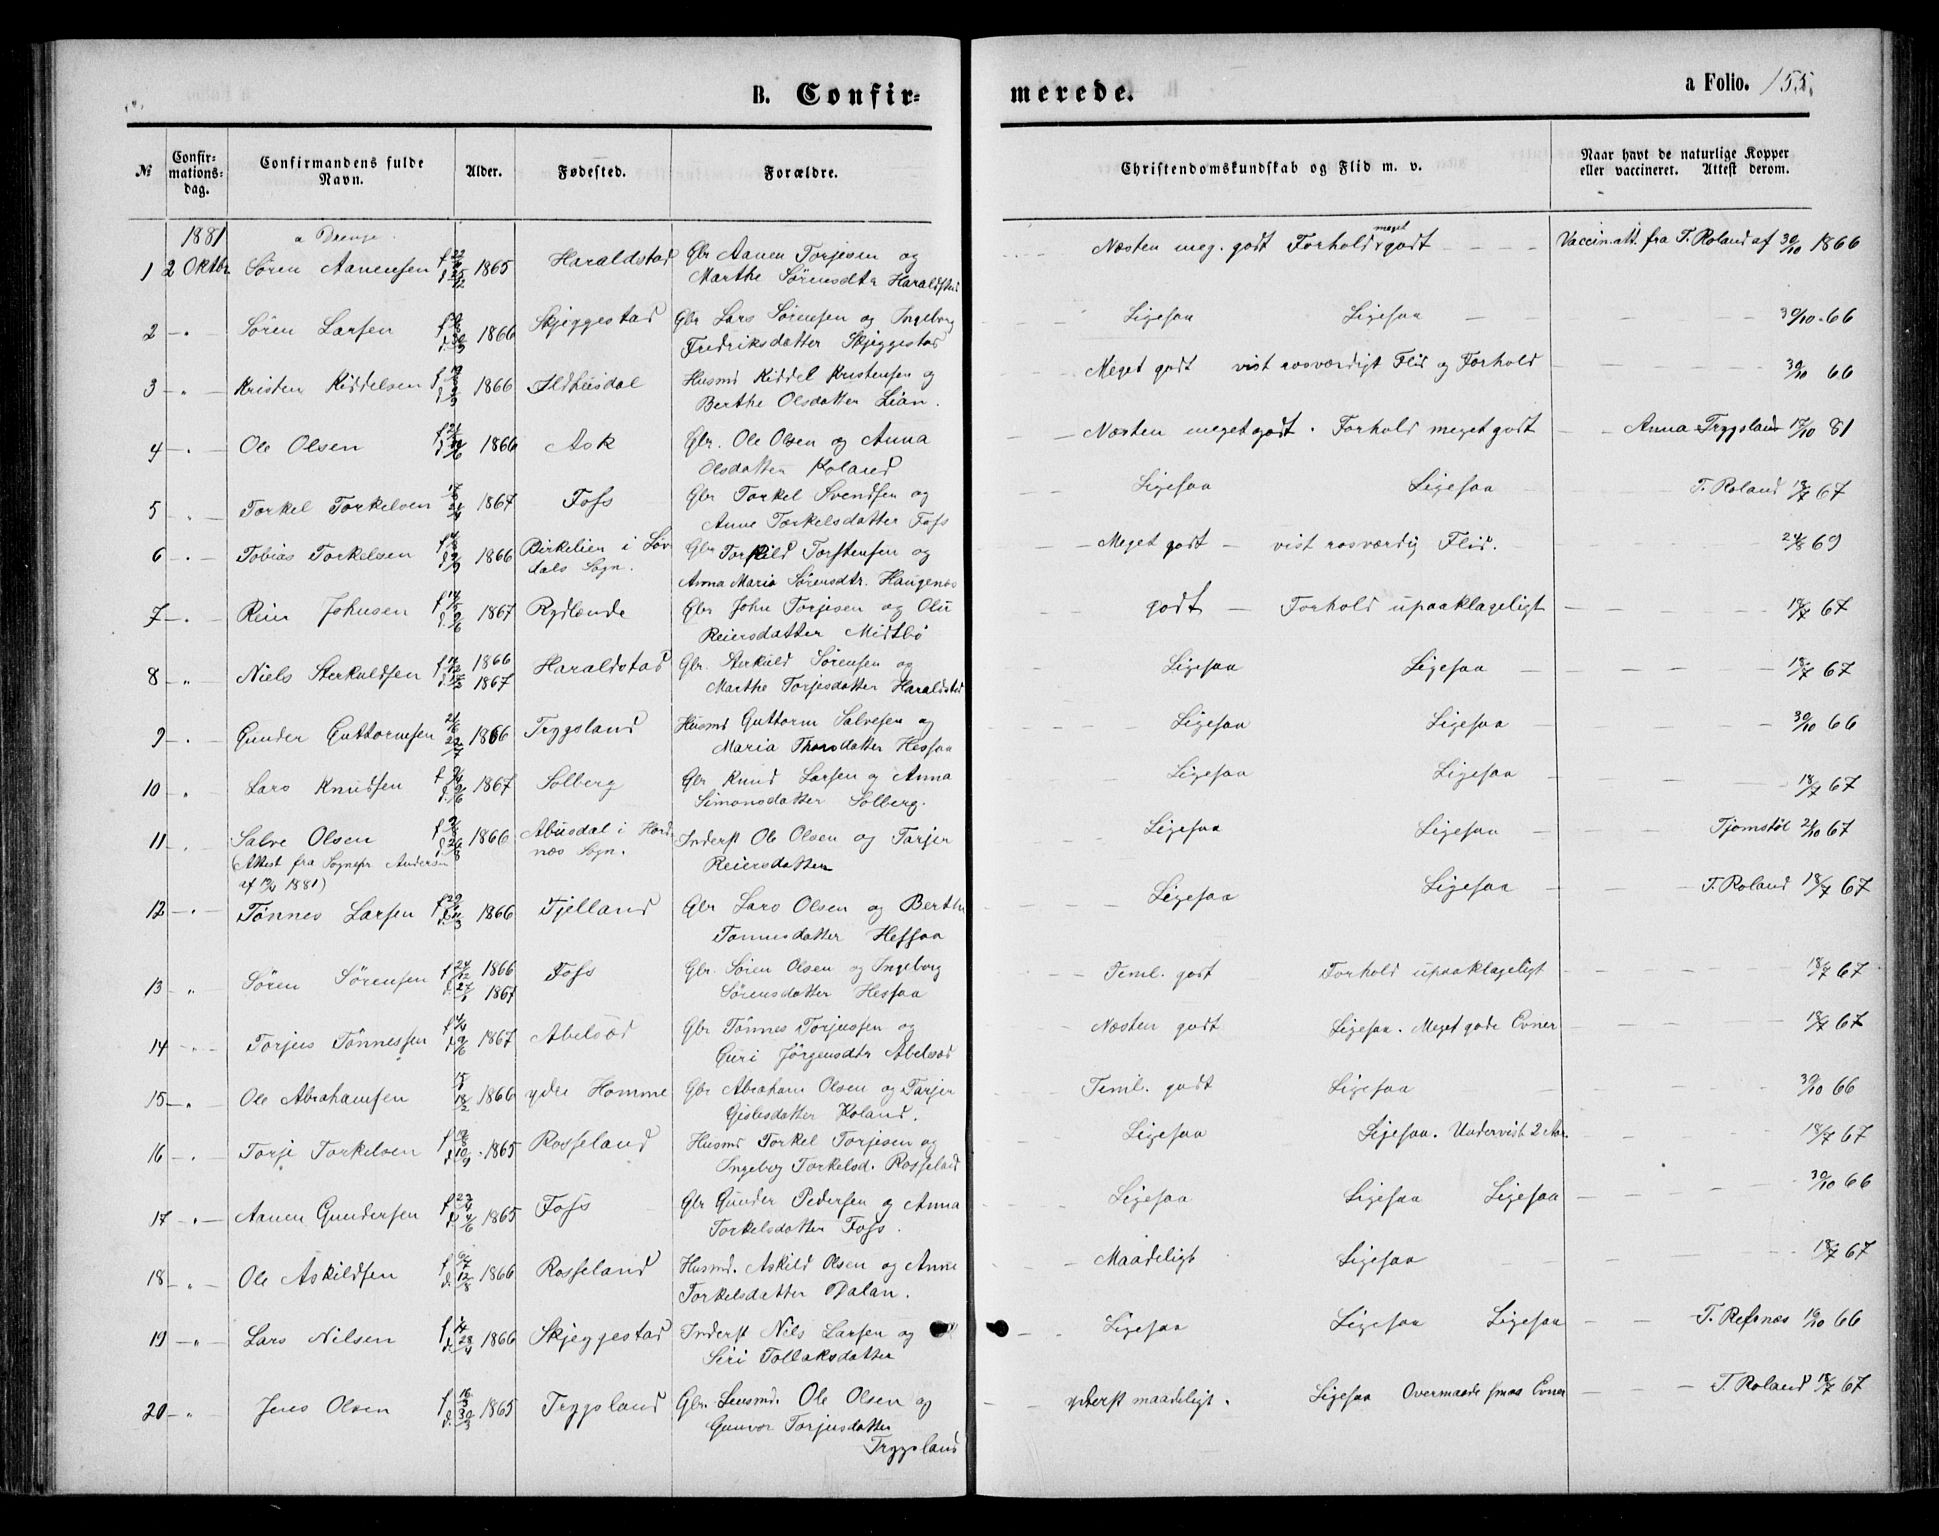 B. Confir-
merede.
a Folio. 155.
№
Confir-
mations-
dag.
Confirmandens fulde
Navn.
Alder.
Fødested.
Forældre.
Christendomskundskab og Flid m. v.
Naar havt de naturlige Kopper
eller vaccineret. Attest derom.
1881 a Drenge.
1 2 Oktbr Søren Aanensen 1865 Haraldstad Gbr Aanen Torjesen og
Marthe Sørensdtr Haraldstad
Næsten meg. godt Forhold meget godt Vaccin.att. fra T. Roland af 30/10 1866
2 " Søren Larsen 1866 Skjeggestad Gbr Lars Sørensen og Ingeborg
Fredriksdatter Skjeggestad
Ligesaa Ligesaa 30/10 66
3 " Kristen Kiddelsen 1866 Ildhusdal Husmd Kiddel Kristensen og
Berthe Olsdatter Lian.
Meget godt vist rosværdigt Flid og Forhold 30/10 66
4 " Ole Olsen 1866 Ask Gbr. Ole Olsen og Anna
Olsdatter Koland
Næsten meget godt. Forhold meget godt Anna Trygsland 17/10 81
5 " Torkel Torkelsen 1867 Foss Gbr Torkel Svendsen og
Anne Torkelsdatter Foss
Ligesaa Ligesaa T. Roland 18/7 67
6 " Tobias Torkelsen 1866 Birkelien i Løv
dals Sogn. Gbr Torkild Torstensen og
Anna Maria Sørensdtr. Haugenes
Meget godt vist rosværdig Flid. 24/8 69
7 " Reier Johnsen 1867 Rydlende Gbr John Torjesen og Olu
Reiersdatter Midtbø
godt Forhold upaaklageligt 18/7 67
8 " Niels Sterkuldsen 1866
1867 Haraldstad Gbr. Sterkuld Sørensen og
Marthe Torjesdatter Haraldstad
Ligesaa Ligesaa 18/7 67
9 " Gunder Guttormsen 1866 Trygsland Husmd Guttorm Salvesen og
Maria Thorsdatter Hessaa
Ligesaa Ligesaa 30/10 66
10 " Lars Knudsen 1867 Solberg Gbr Knud Larsen og Anna
Simonsdatter Solberg.
Ligesaa Ligesaa 18/7 67
11 " Salve Olsen 1866 Abusdal i Hor
næs Sogn. Inderst Ole Olsen og Tarjer
Reiersdatter
(Attest fra Sognepr Andersen
1881)
Ligesaa Ligesaa Tjomstøl 21/10 67
12 " Tønnes Larsen 1866 Fjelland Gbr Lars Olsen og Berthe
Tønnesdatter Hessaa
Ligesaa Ligesaa T. Roland 18/7 67
13 " Søren Sørensen 24/12 1866
27/1 1867 Foss Gbr. Søren Olsen og Ingeborg
Sørensdatter Hessaa
Teml. godt Forhold upaaklageligt 18/7 67
14 " Torjus Tønnessen 1867 Abelsød Gbr Tønnes Torjussen og
Guri Jørgensdtr Abelsød
Næsten godt Ligesaa. Meget gode Evner 18/7 67
15 " Ole Abrahamsen 1866 ydre Homme Gbr Abraham Olsen og Tarjer
Gislesdatter Koland.
Teml. godt Ligesaa 30/10 66
16 " Torje Torkelsen 1865 Rosseland Husmd Torkel Torjesen og
Ingeborg Torkelsd. Rosseland
Ligesaa Ligesaa. Undervist 2 Aar. 18/7 67
17 " Aanen Gundersen 1865 Foss Gbr Gunder Pedersen og Anna
Torkelsdatter Foss.
Ligesaa Ligesaa Ligesaa 30/10 66
18 " Ole Askildsen 1866 Rosseland Husmd. Askild Olsen og Anne
Torkelsdatter Dalan.
Maadeligt Ligesaa 18/7 67
19 " Lars Nilsen 1866 Skjeggestad Inderst Nils Larsen og
Siri Tollaksdatter
Ligesaa Ligesaa Ligesaa T. Refsnæs 19/10 66
20 " Jens Olsen 1865 Trygsland Gbr. Ole Olsen og
Gunvor Torjusdatter
Trygsland
yderst maadeligt. Ligesaa Overmaade smaa Evner T. Roland 18/7 67